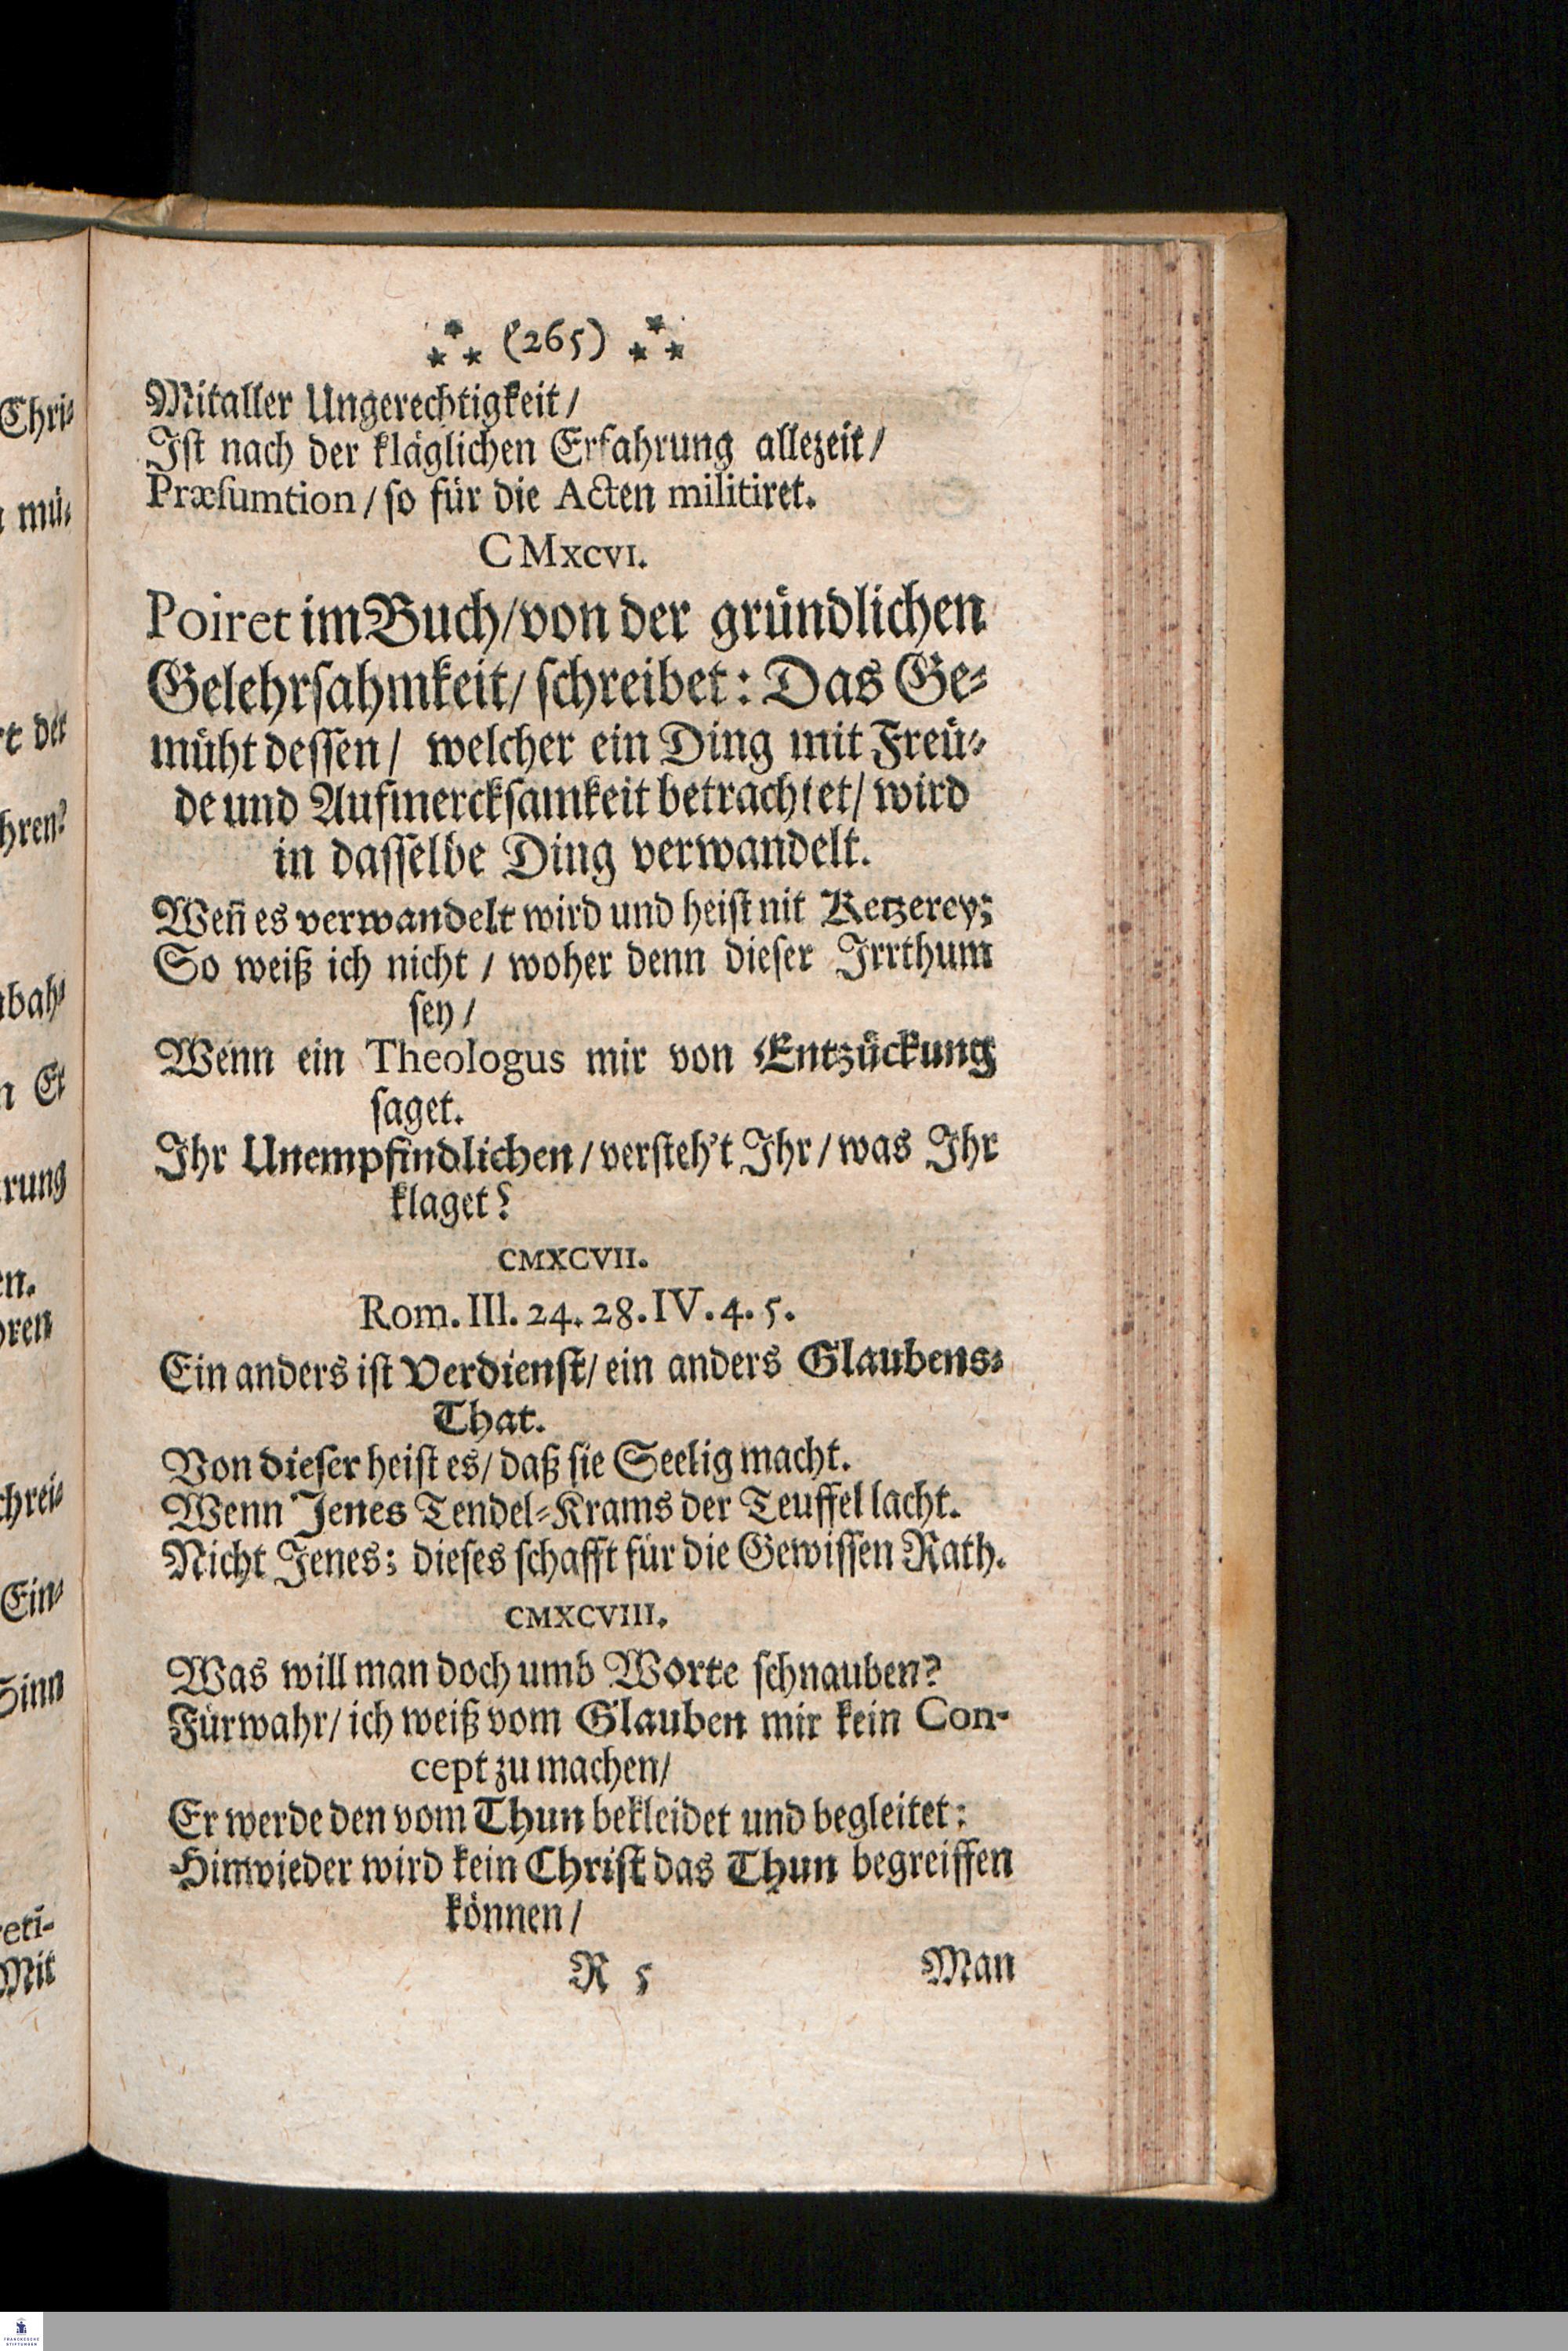 (265)
Mitaller Ungerechtigkeit/
Ist nach der kläglichen Erfahrung allezeit/
Præsumtion/ so für die Acten militiret.
CMXCVI.
Poiret im Buch/von der gründlichen
Gelehrsahmkeit/ schreibet: Das Ge-
müht dessen/ welcher ein Ding mit Freü-
de und Aufmercksamkeit betrachtet/ wird
in dasselbe Ding verwandelt.
Weñ es verwandelt wird und heist nit Ketzerey;
So weiß ich nicht / woher denn dieser Irrthum
sey/
Wenn ein Theologus mir von Entzückung
saget.
Ihr Unempfindlichen/versteh't Ihr/was Ihr
klaget?
CMXCVII.
Rom. III. 24. 28. IV. 4. 5.
Ein anders ist Verdienst/ ein anders Glaubens-
That.
Von dieser heist es/ daß sie Seelig macht.
Wenn Jenes Tendel-Krams der Teuffel lacht.
Nicht Jenes; dieses schafft für die Gewissen Rath.
CMXCVIII.
Was will man doch umb Worte schnauben?
Fürwahr/ ich weiß vom Glauben mir kein Con-
cept zu machen/
Er werde den vom Thun bekleidet und begleitet:
Hinwieder wird kein Christ das Thun begreiffen
können/
R 5 Man
Chri-
mü-
der
hren?
rung
en.
chrei-
Ein-
Sinn
Mit
FRANCKESCHE
STIFTUNGEN